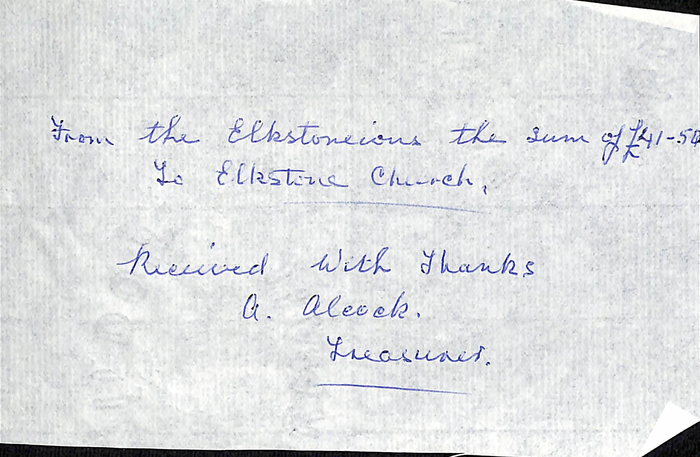 From the Elkstoneions the sum of £41-50
To Elkstone Church,
Received With Thanks
A. Alcock.
Treasurer.